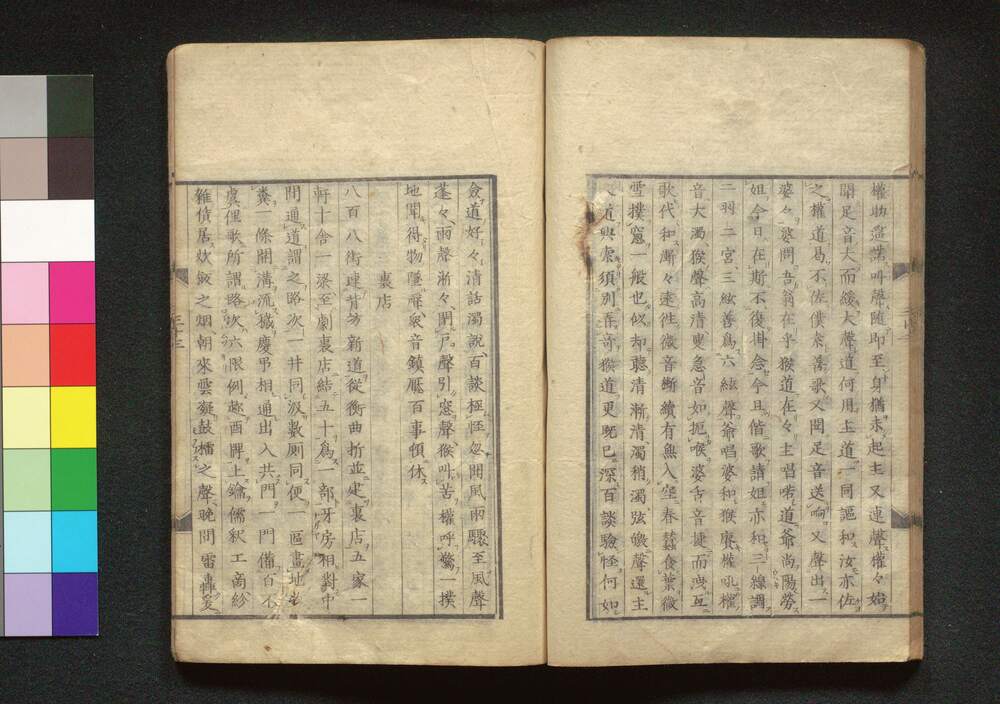 權助盡諾叫聲隨即至身猶未起主又連聲權々始
聞足音大而緩大聲道何用主道一同謳和汝亦佐
之權道易不佐僕素善歌又聞足音送響又聲出一
婆々婆問吾翁在乎猴道在々主唱喏道爺尚陽勞
姐今日在斯不復掛念今且偕歌請姐亦和三線調
二羽二宮三絃善爲六絃聲爺唱婆和猴賡權吼權
音大濁猴聲高清更急音如扼喉婆舌音捷而曳互
歌代和漸々速徃徵音斷續有無入空春蠶食葉微
雪撲窓一般也似却聽清漸清濁稍濁弦緩聲還主
道興索須別弄奇猴道更既已深百談驗怪何如
僉道好々清話濁説百談極怪忽聞風雨驟至風聲
蓬々雨聲淅々閉戸聲引窓聲猴叫苦權呼驚一撲
地聞得物墮聲衆音鎮壓百事頓休
裏店
八百八街連背坊新道從衡曲折並建裏店五家一
軒十舍一梁至劇裏店結五十爲一部牙房相對中
間通道謂之路次一井同汲數厠同便一區畫地
糞一條開溝流穢慶弔相通出入共門一門備百不
虞俚歌所謂路次六限例趂酉牌上鑰儒釈工商紛
雜僦居炊飯之烟朝來雲凝鼓櫺之聲晩間雷轟